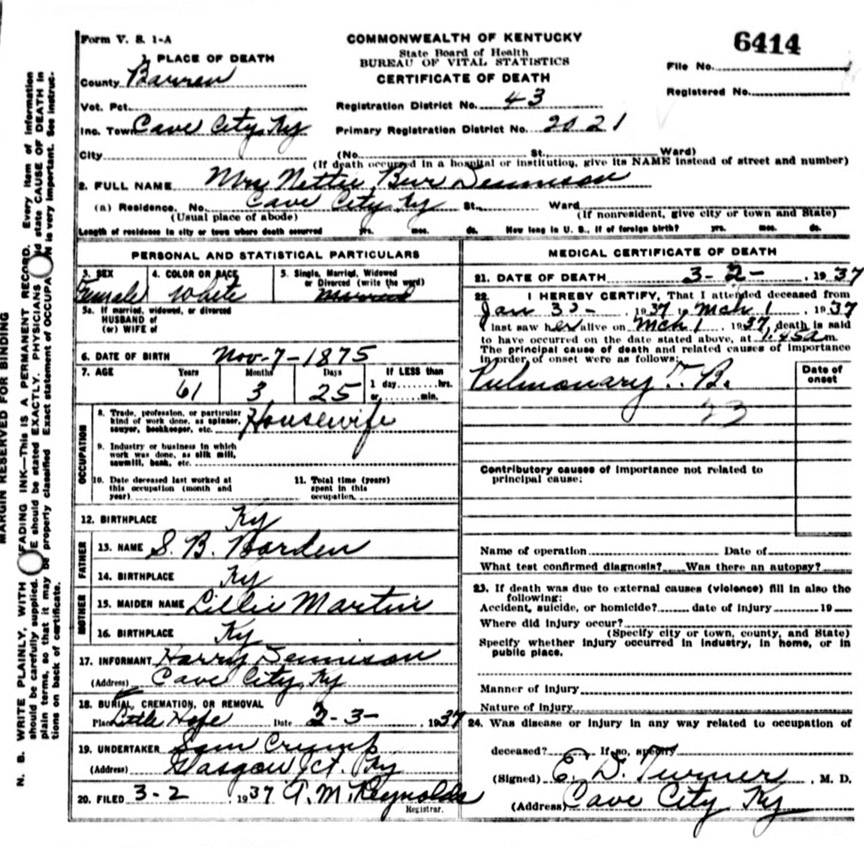 Form V. S. 1-A
COMMONWEALTH OF KENTUCKY
State Board of Health
BUREAU OF VITAL STATISTICS
CERTIFICATE OF DEATH
6414
File No.
Registered No.
1. PLACE OF DEATH
County Barren
Vot. Pct.
Inc. Town Cave City, Ky
City
Registration District No. 43
Primary Registration District No. 2021
(No. St. Ward)
(If death occurred in a hospital or institution, give its NAME instead of street and number)
2. FULL NAME Mrs Nettie Dennison
(a) Residence. No. Cave City Ky St. Ward
(Usual place of abode) (If nonresident, give city or town and State)
Length of residence in city or town where death occurred yrs. mos. ds. How long in U. S., if of foreign birth? yrs. mos. ds.
PERSONAL AND STATISTICAL PARTICULARS
3. SEX 4. COLOR OR RACE 5. Single, Married, Widowed
or Divorced (write the word)
Female White
5a. If married, widowed, or divorced
HUSBAND of
(or) WIFE of
6. DATE OF BIRTH Nov-7-1875
7. AGE Years Months Days If LESS than
61 3 25 1 day hrs.
or min.
OCCUPATION
8. Trade, profession, or particular
kind of work done, as spinner,
sawyer, bookkeeper, etc. Housewife
9. Industry or business in which
work was done, as silk mill,
sawmill, bank, etc.
10. Date deceased last worked at
this occupation (month and
year)
11. Total time (years)
spent in this
occupation
12. BIRTHPLACE Ky
FATHER
13. NAME S. B. Barden
14. BIRTHPLACE Ky
MOTHER
15. MAIDEN NAME Lillie Martin
16. BIRTHPLACE Ky
17. INFORMANT Harry Dennison
(Address) Cave City, Ky
18. BURIAL, CREMATION, OR REMOVAL
Place Little Hope Date 2-3- 1937
19. UNDERTAKER Sam Crump
(Address) Glasgow Jct. Ky
20. FILED 3-2, 1937 A. M. Reynolds
Registrar.
MEDICAL CERTIFICATE OF DEATH
21. DATE OF DEATH 3-2-, 1937
22. I HEREBY CERTIFY, That I attended deceased from
Jan 1937 to Mch 1, 1937
I last saw her alive on Mch 1, 1937, death is said
to have occurred on the date stated above, at m.
The principal cause of death and related causes of importance
in order of onset were as follows:
Date of
onset
Pulmonary T. B.
23
Contributory causes of importance not related to
principal cause:
Name of operation Date of
What test confirmed diagnosis? Was there an autopsy?
23. If death was due to external causes (violence) fill in also the
following:
Accident, suicide, or homicide? date of injury 19
Where did injury occur?
(Specify city or town, county, and State)
Specify whether injury occurred in industry, in home, or in
public place.
Manner of injury
Nature of injury
24. Was disease or injury in any way related to occupation of
deceased? If so, specify
(Signed) E. D. Turner, M. D.
(Address) Cave City Ky
MARGIN RESERVED FOR BINDING
N. B. WRITE PLAINLY, WITH FADING INK—This IS A PERMANENT RECORD. Every item of information
should be carefully supplied. E should be stated EXACTLY. PHYSICIANS d state CAUSE OF DEATH in
plain terms, so that it may be properly classified. Exact statement of OCCUPA is very important. See instruc-
tions on back of certificate.